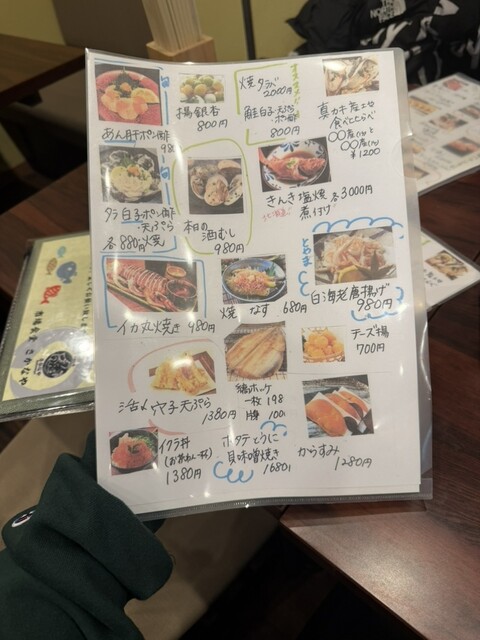 あん肝ポン酢
揚銀杏
800円
焼タラバ
2000円
鮭白子天ぷら
ポン酢
800円
真カキ産地
食べくらべ
¥1200
タラ白子ポン酢
・天ぷら
各880円・焼
本日の
酒むし
980円
きんき塩焼 各3000円
煮付け
イカ丸焼き 980円
焼なす 680円
白海老唐揚げ
980円
活〆穴子天ぷら
1380円
縞ホッケ
一枚 198
チーズ揚
700円
イクラ丼
(お茶わん一杯)
1380円
ホタテとうに
貝味噌焼き
1680円
からすみ
1280円
市場食堂 さかなや
THE
NORTH
FACE